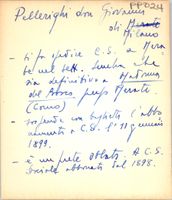 PP024
Pellerighi don Giovanni
di Merate
Milano
- si fa spedire C.S. a Mera
te nel sett. Sembra che
sia definitivo a Madonna
del Bosco, presso Merate.
(Como)
- risponde con biglietto l'abbo
namento a C.S. l'11 gennaio
1899.
- è un prete oblato. A C.S.
sociale abbonato dal 1898.